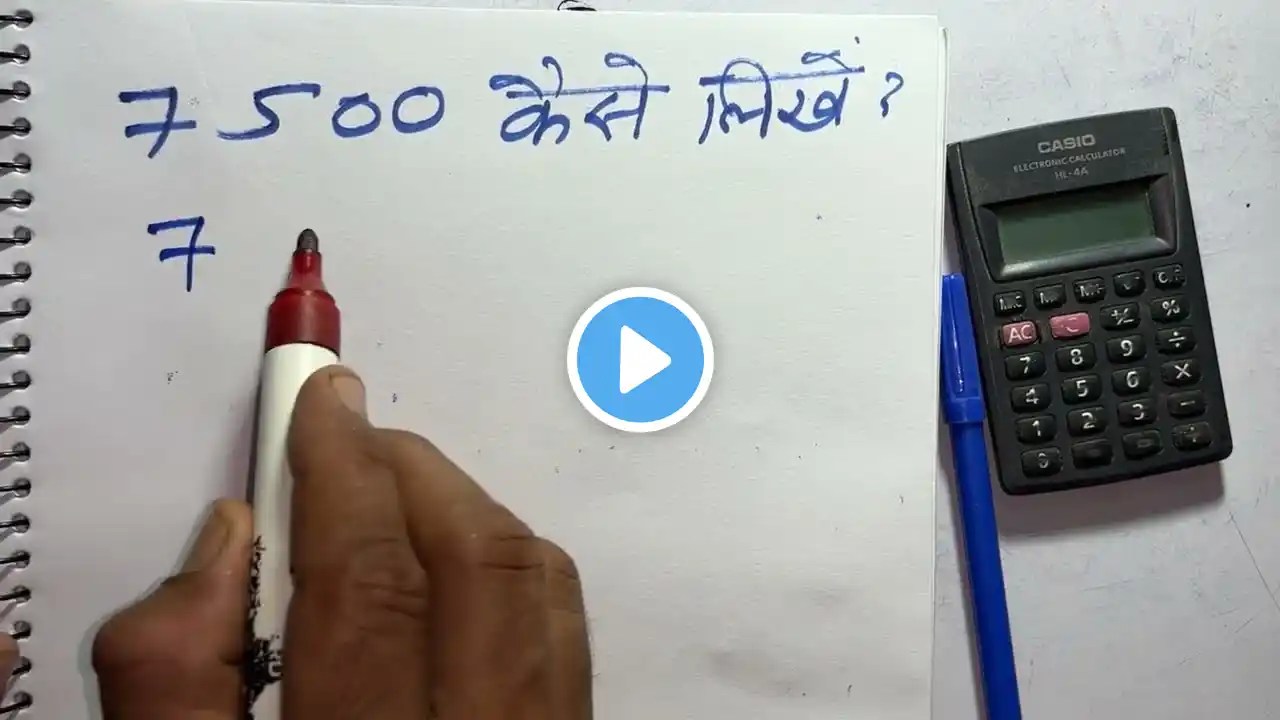 7500 कैसे लिखें?
7
CASIO
ELECTRONIC CALCULATOR
HL-4A
AC
%
7 8 9 ÷
4 5 6 X
1 2 3 -
0